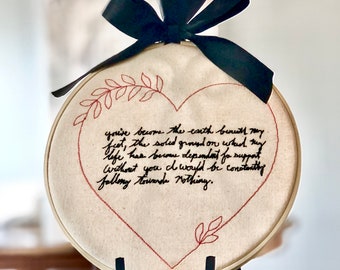 you've become the earth beneath my
feet, the solid ground on which my
life has become dependent for support
Without you I would be constantly
falling towards nothing.